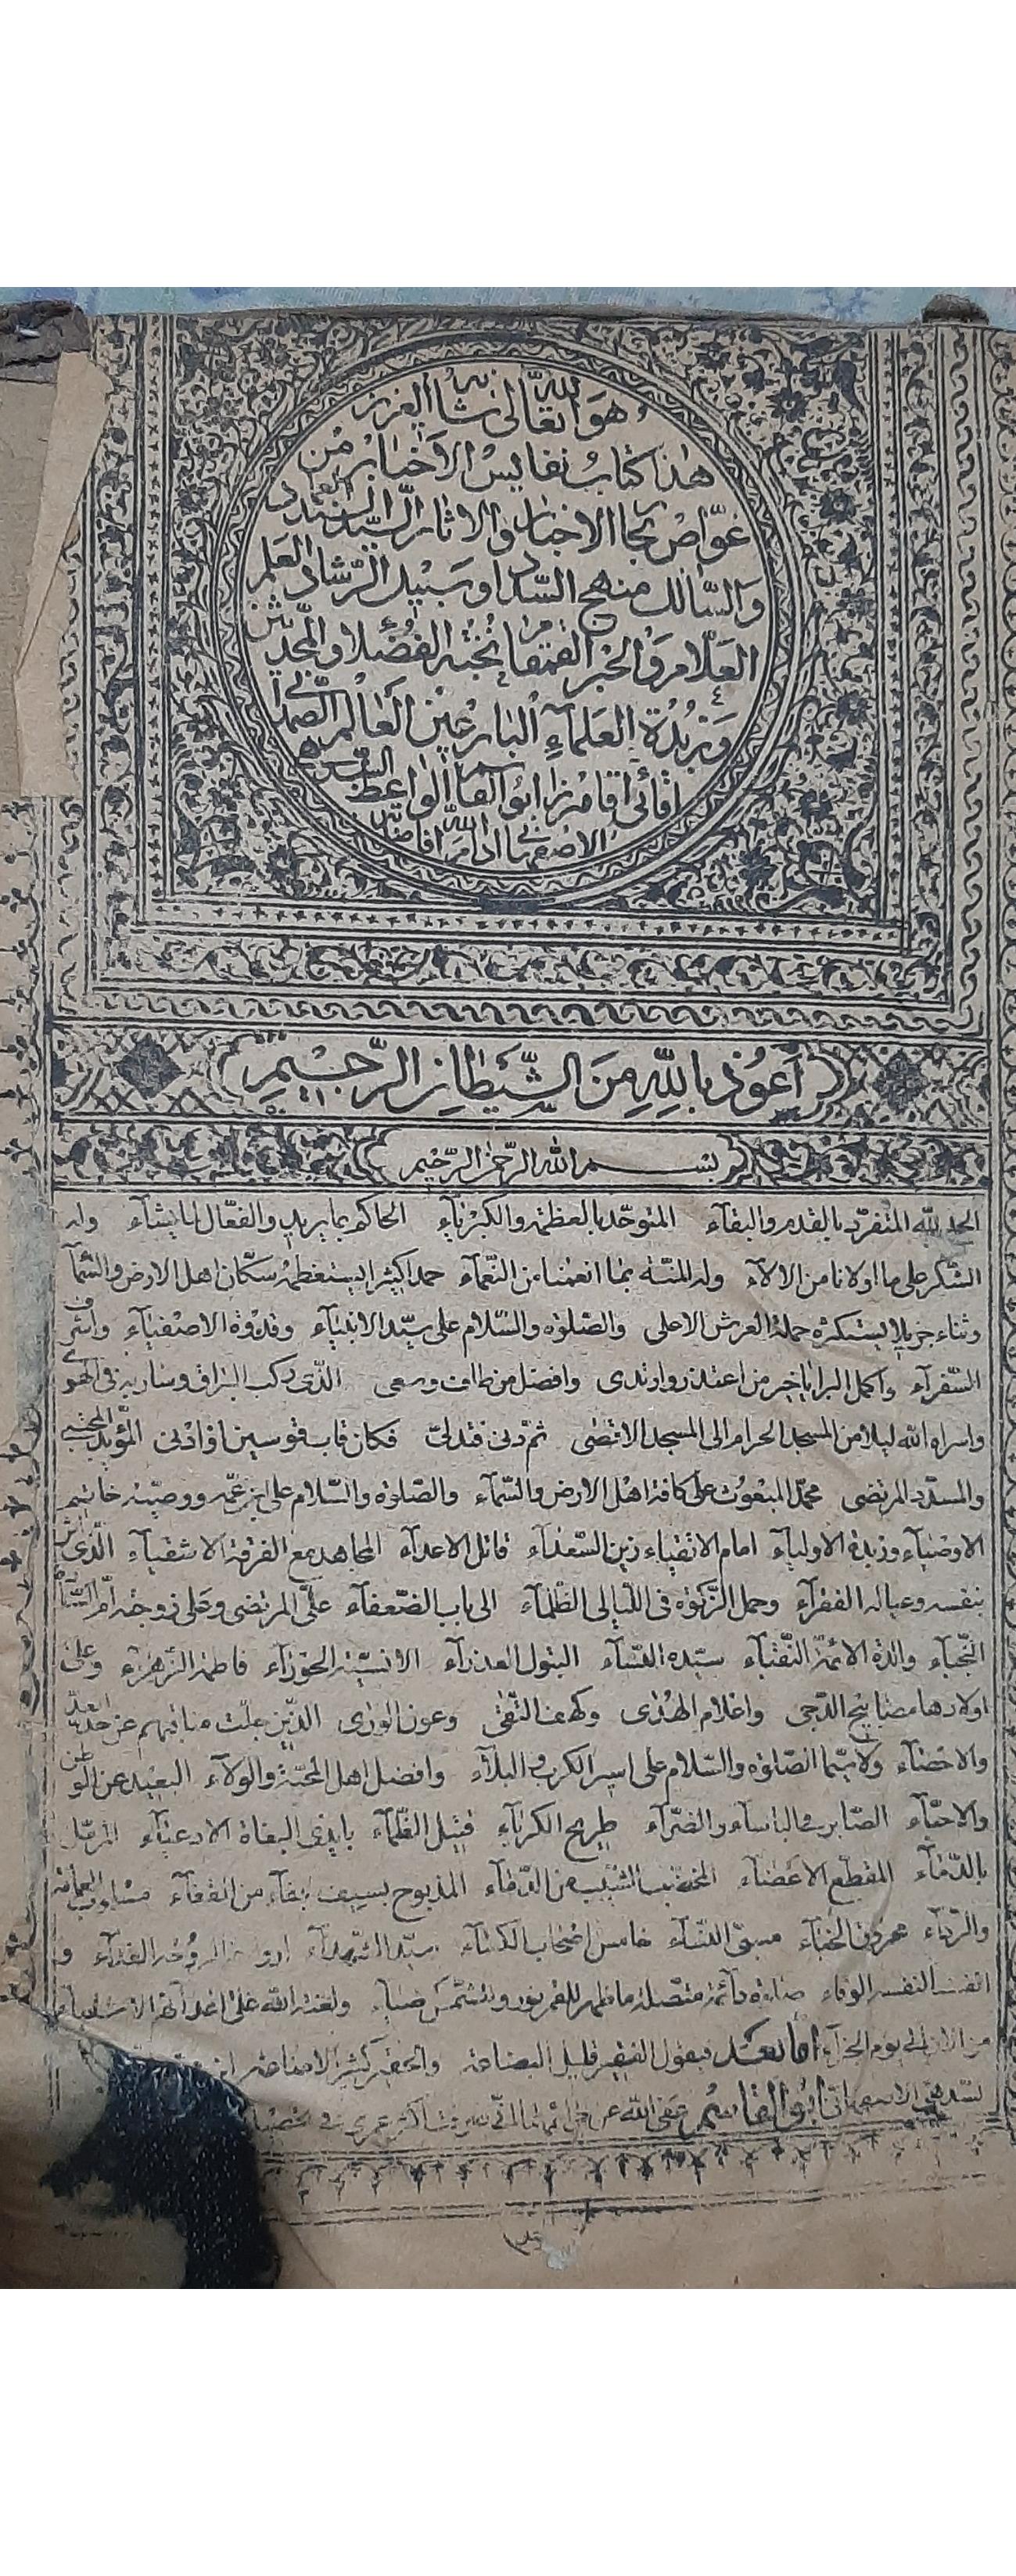 هو الله تعالى شأنه العزيز
هذا كتاب نفايس الاخبار من
غوّاص بحار الاخبار والاثار السيّد السند
والسّالك منهج السّداد وسبيل الرّشاد العلم
العلّام والحبر القمقام نخبة الفضلاء والمحدّثين
وزبدة العلماء البارعين العالم الصّمدانى
اقائى اقا ميرزا ابو القاسم الواعظ
الاصفهانى ادام الله افاضاته
اَعوُذُ بِاللّهِ مِنَ الشَّيْطانِ الرَّجيْمِ
بسم الله الرّحمن الرّحيم
الحمد للّه المتفرّد بالقدم والبقآء المتوحّد بالعظمة والكبريآء الحاكم بما يريد والفعّال لما يشآء وله
الشّكر على ما اولانا من الالآء وله المنّة بما انعمنا من النّعمآء حمدا كثيرا يستعظمه سكّان اهل الارض والسّمآء
وثناء جزيلا يستكثره حملة العرش الاعلى والصّلوة والسّلام على سيّد الانبيآء وقدوة الاصفيآء واشرف
السّفرآء واكمل البرايا خير من اعتذر وارتدى وافضل من طاف وسعى الّذى ركب البراق وسار به فى الهوى
واسراه الله ليلا من المسجد الحرام الى المسجد الاقصى ثم دنى فتدلّى فكان قاب قوسين او ادنى المؤيّد المجتبى
والمسدّد المرتضى محمّد المبعوث على كافة اهل الارض والسّمآء والصّلوة والسّلام على اخيه وابن عمّه ووصيّه خاتم
الاوصيآء وزبدة الاوليآء امام الاتقياء زين السّعدآء قاتل الاعدآء المجاهد مع الفرقة الاشقيآء الّذى اثر
بنفسه وعياله الفقرآء وحمل الزّكوة فى اللّيالى الظّلمآء الى باب الضّعفآء علىّ المرتضى وعلى زوجته امّ السّادة
النّجبآء والدة الائمّة النّقبآء سيّدة النسآء البتول العذرآء الانسيّة الحورآء فاطمة الزّهرآء وعلى
اولادها مصابيح الدّجى واعلام الهُدى وكهف التّقى وعون الورى الّذين جلّت مناقبهم عن حدّ العدّ
والاحصآء ولا سيّما الصّلوة والسّلام على اسير الكرب والبلآء وافضل اهل المحبّة والولآء البعيد عن الوطن
والاحبّآء الصّابر فى الباسآء والضرّآء طريح الكربلآء قتيل الظّمآء بايدى البغاة الادعيآء المرمّل
بالدّمآء المقطّع الاعضآء المخضّب الشّيب من الدّمآء المذبوح بسيف الجفآء من القفآء مسلوب العمامة
والرّدآء محروق الخبآء مسبىّ النسآء خامس اصحاب الكسآء سيّد الشّهدآء لروحه الفدآء و
انفسنا لنفسه الوقآء صلوة دآئمة متّصلة ما ظهر للقمر نور وللشّمس ضيآء ولعنة الله على اعدآئهم
من الان الى يوم الجزآء امّا بعد فيقول الفقير قليل البضاعة والحقير كثير الاضاعة ابن
الاصفهانى ابو القاسم عفى الله عن جرائمهما